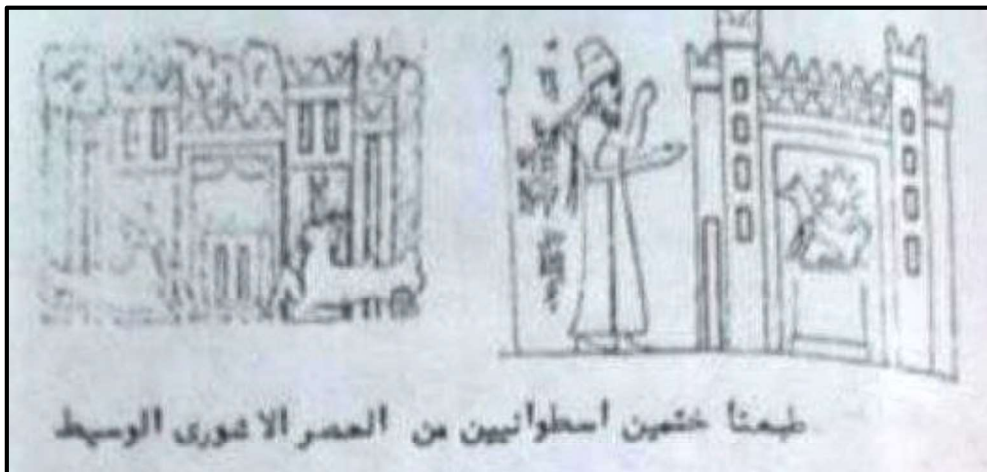 طبعتا ختمين اسطوانيين من العصر الاشورى الوسيط